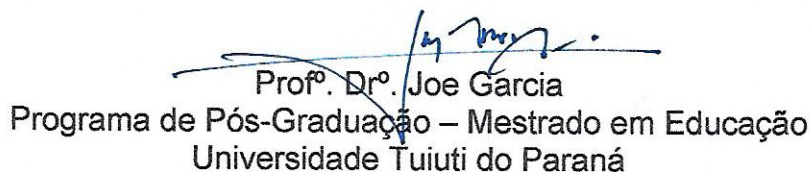 Profº. Drº. Joe Garcia
Programa de Pós-Graduação – Mestrado em Educação
Universidade Tuiuti do Paraná